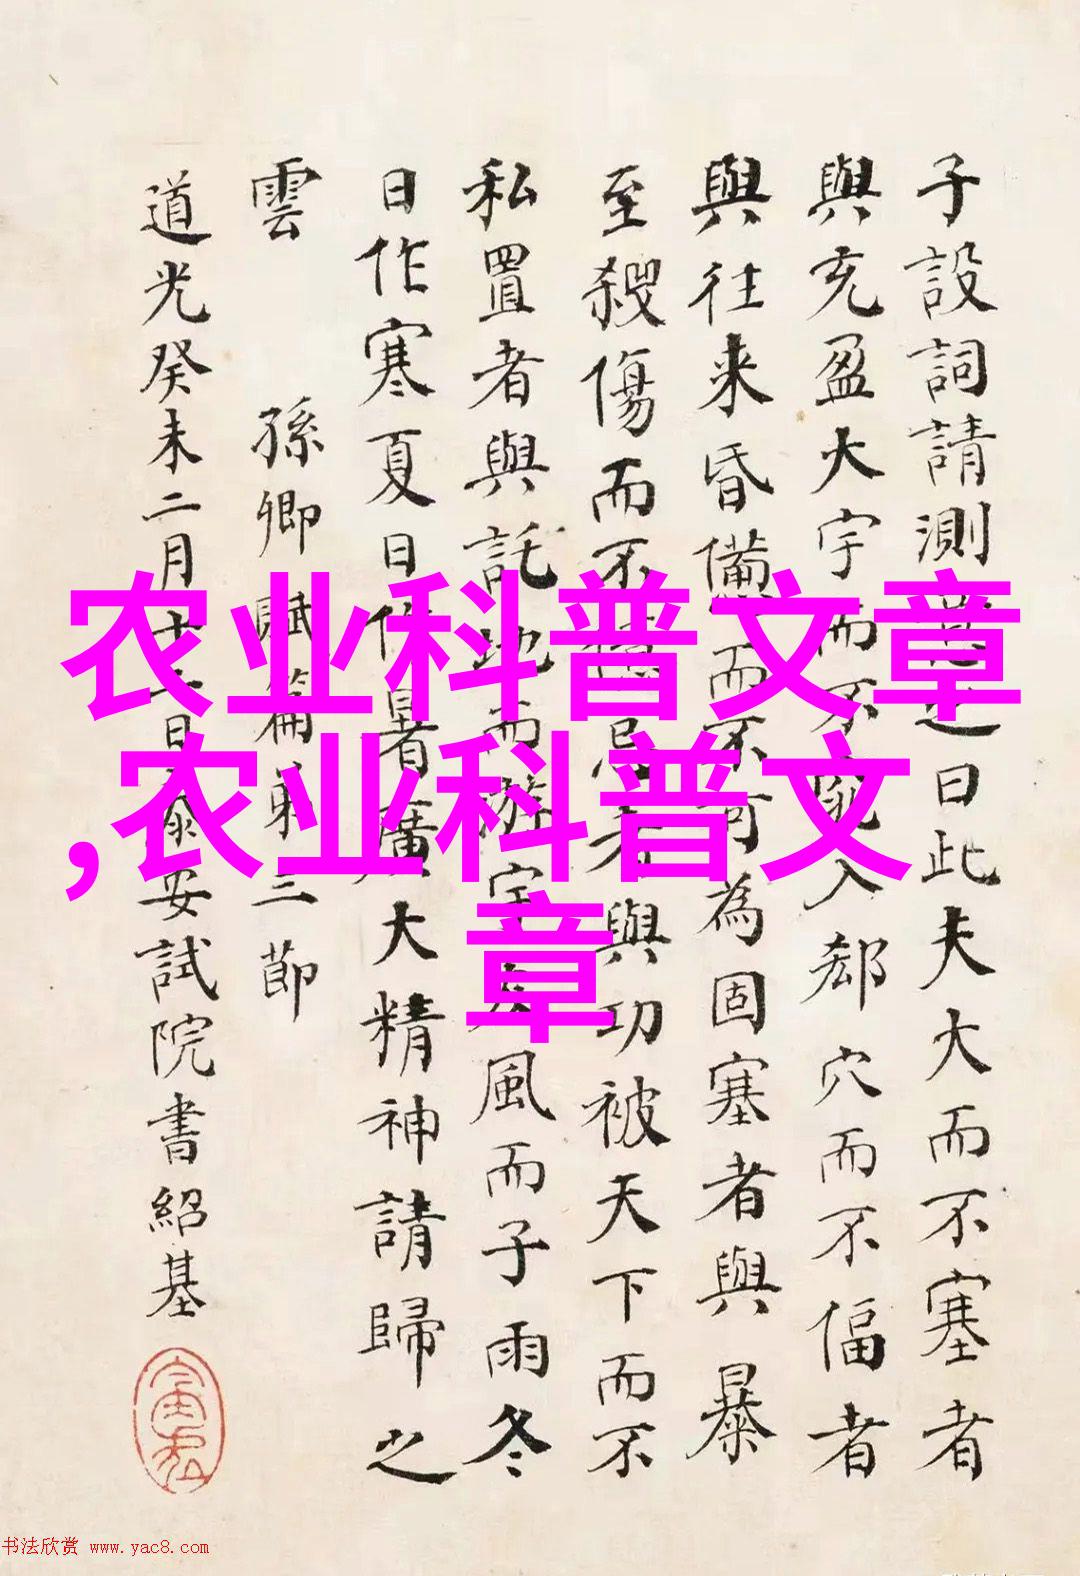 子設詞請測意之曰此夫大而不塞者
與充盈大宇而不窕入郄穴而不偪者
與往来昏憊而不可為固塞者與暴
至殺傷而不億忌者與功被天下而不
私置者與託地而游宇友風而子雨冬
日作寒夏日作暑廣大精神請歸之
雲 孫卿賦篇第三節
道光癸未二月十日泰安試院書紹基
农业科普文章
,农业科普文
章
书法欣赏 www.yac8.com